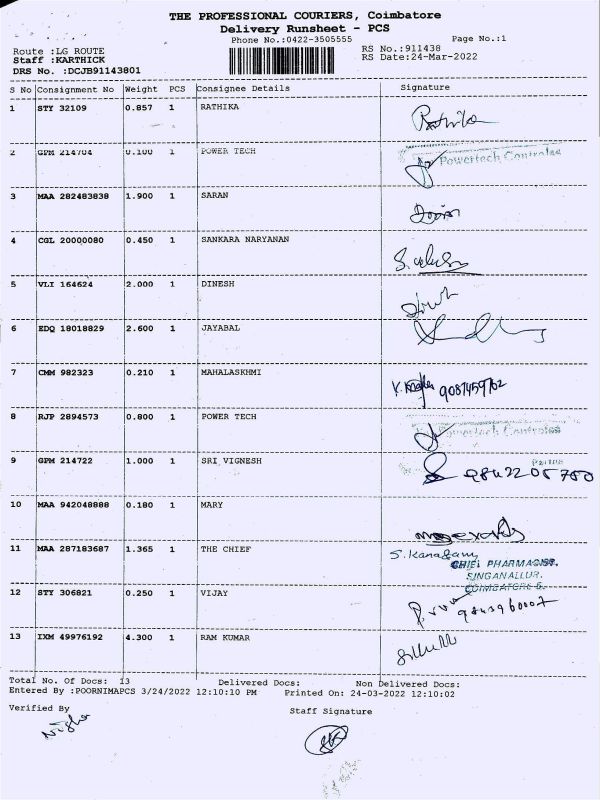 THE PROFESSIONAL COURIERS, Coimbatore
Delivery Runsheet - PCS
Phone No.:0422-3505555 Page No.:1
Route :LG ROUTE RS No.:911438
Staff :KARTHICK RS Date:24-Mar-2022
DRS No. :DCJB91143801
S No Consignment No Weight PCS Consignee Details Signature
1 STY 32109 0.857 1 RATHIKA Rathika
2 GPM 214704 0.100 1 POWER TECH Powertech Controls
3 MAA 282483838 1.900 1 SARAN
4 CGL 20000080 0.450 1 SANKARA NARYANAN
5 VLI 164624 2.000 1 DINESH
6 EDQ 18018829 2.600 1 JAYABAL
7 CMM 982323 0.210 1 MAHALASKHMI
8 RJP 2894573 0.800 1 POWER TECH Powertech Controls
9 GPM 214722 1.000 1 SRI VIGNESH
10 MAA 942048888 0.180 1 MARY
11 MAA 287183687 1.365 1 THE CHIEF S. Kanagam
CHIEF PHARMACIST.
SINGANALLUR.
COIMBATORE 5.
12 STY 306821 0.250 1 VIJAY
13 IXM 49976192 4.300 1 RAM KUMAR
Total No. Of Docs: 13 Delivered Docs: Non Delivered Docs:
Entered By :POORNIMAPCS 3/24/2022 12:10:10 PM Printed On: 24-03-2022 12:10:02
Verified By Staff Signature